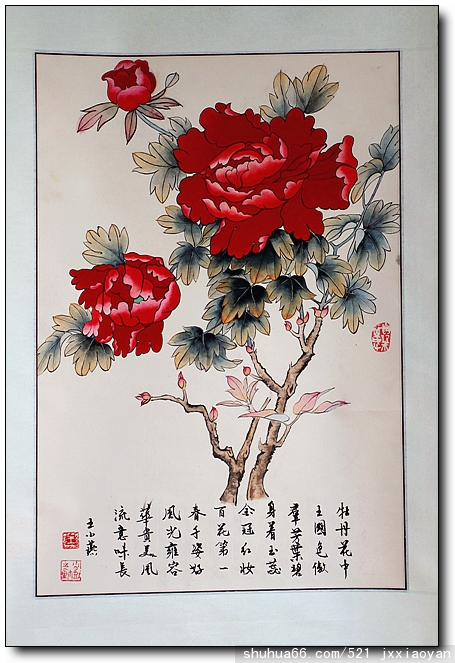 牡丹花中
王國色傲
羣芳葉碧
身着玉蕊
金冠红妆
百花第一
春千姿好
風光雍容
華貴美風
流意味長
王小燕
shuhua66.com/521 jxxiaoyan